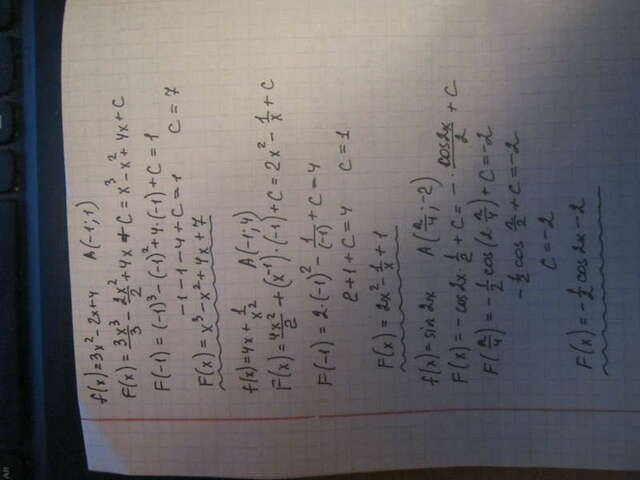 f(x)=3x²-2x+4 A(-1;1)
F(x)=3x³/3-2x²/2+4x+C=x³-x²+4x+C
F(-1)=(-1)³-(-1)²+4·(-1)+C=1
-1-1-4+C=1 C=7
F(x)=x³-x²+4x+7
f(x)=4x+1/x² A(-1;4)
F(x)=4x²/2+(x⁻¹)·(-1)+C=2x²-1/x+C
F(-1)=2·(-1)²-1/(-1)+C=4
2+1+C=4 C=1
F(x)=2x²-1/x+1
f(x)=sin2x A(π/4;-2)
F(x)=-cos2x·1/2+C=-·cos2x/2+C
F(π/4)=-1/2cos(2π/4)+C=-2
-1/2cosπ/2+C=-2
C=-2
F(x)=-1/2cos2x-2